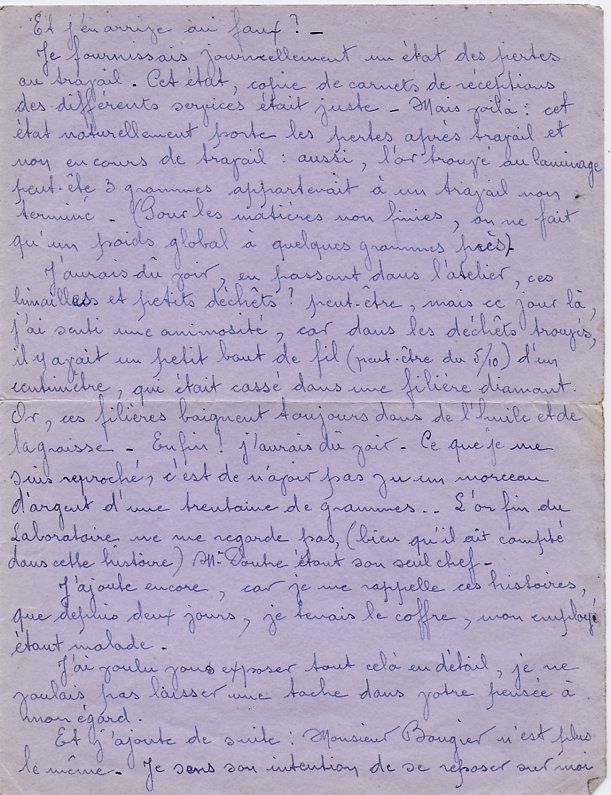 Et j'en arrive au faux ? –
Je fournissais journellement un état des pertes
au travail. Cet état, copie de carnets de réceptions
des différents services était juste – Mais voilà : cet
état naturellement porte les pertes après travail et
non en cours de travail : aussi, l'or trouvé au laminage
peut-ête 3 grammes appartenait à un travail non
terminé – (Pour les matières non finies, on ne fait
qu'un poids global à quelques grammes près).
J'aurais dû voir, en passant dans l'atelier, ces
limailles et petits déchêts ? peut-être, mais ce jour là,
j'ai senti une animosité, car dans les déchêts trouvés,
il y avait un petit bout de fil (peut-être du 5/10) d'un
centimètre, qui était cassé dans une filière diamant.
Or, ces filières baignent toujours dans de l'huile et de
la graisse – Enfin ! j'aurais dû voir – Ce que je me
suis reproché, c'est de n'avoir pas vu un morceau
d'argent d'une trentaine de grammes.. L'or fin du
Laboratoire ne me regarde pas, (bien qu'il ait compté
dans cette histoire) Mr Doutre étant son seul chef –
J'ajoute encore, car je me rappelle ces histoires,
que depuis deux jours, je tenais le coffre, mon employé
étant malade.
J'ai voulu vous exposer tout celà en détail, je ne
voulais pas laisser une tache dans votre pensée à
mon égard.
Et j'ajoute de suite : Monsieur Bougier n'est plus
le même – Je sens son intention de se reposer sur moi